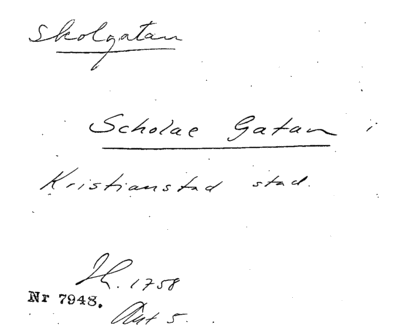 Skolgatan
Scholae Gatan i
Kristianstad stad.
1758
Nr 7948.
5.